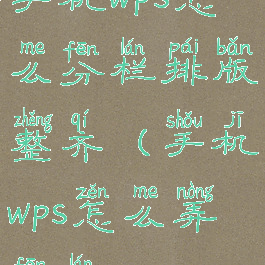 手机wps怎
me fēn lán pái bǎn
么分栏排版
zhěng qí shǒu jī
整齐（手机
zěn me nòng
wps怎么弄
fēn lán